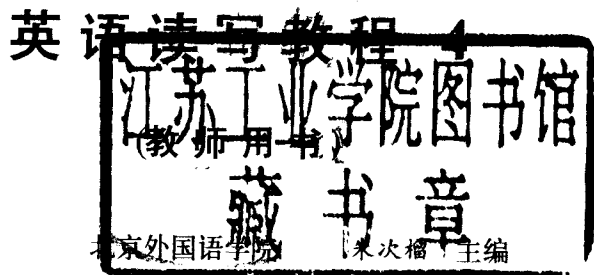 英语读写教程 4
江苏工业学院图书馆
(教师用书)
藏书章
北京外国语学院 朱次榴 主编